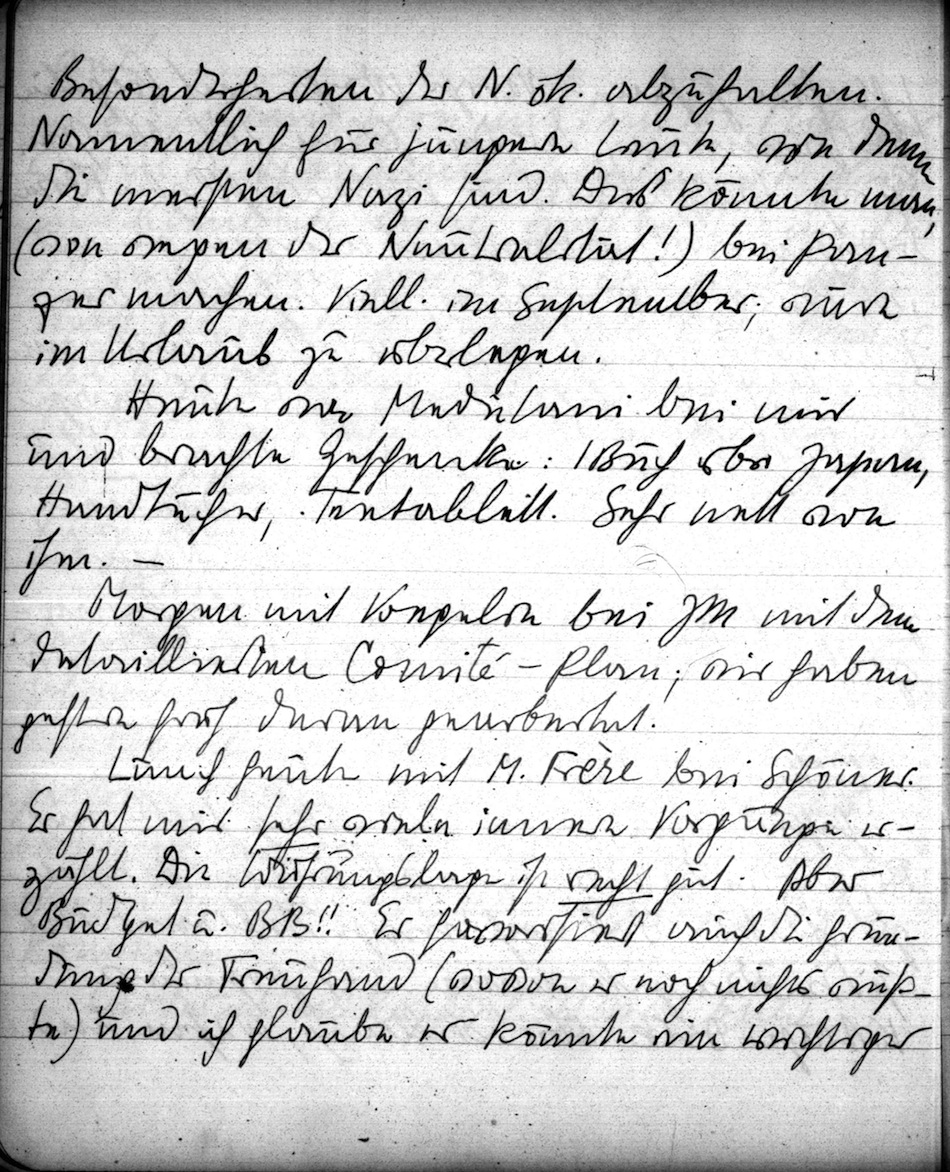 Besonderheiten der N. Ök. abzuhalten.
Namentlich für jüngere Leute, von denen
die meisten Nazi sind. Das könnte man,
(von wegen der Neutralität!) bei Pan-
zer machen. Viell. im September;
im Urlaub zu überlegen.
Heute war bei mir
und brachte Geschenke: 1 Buch über Japan,
Handtücher, Sehr nett von
ihm. —
Morgen mit bei JM mit dem
detaillierten Comité-Plan; wir haben
gestern früh daran gearbeitet.
Lunch heute mit M. Frère bei Schöner.
Er hat mir sehr viele innere Vorgänge er-
zählt. Die Währungslage ist recht gut. Aber
Budget u. BB!! Er auch die Grün-
dung der Treuhand (wovon er noch nichts wuß-
te) und ich glaube er könnte ein wichtiger